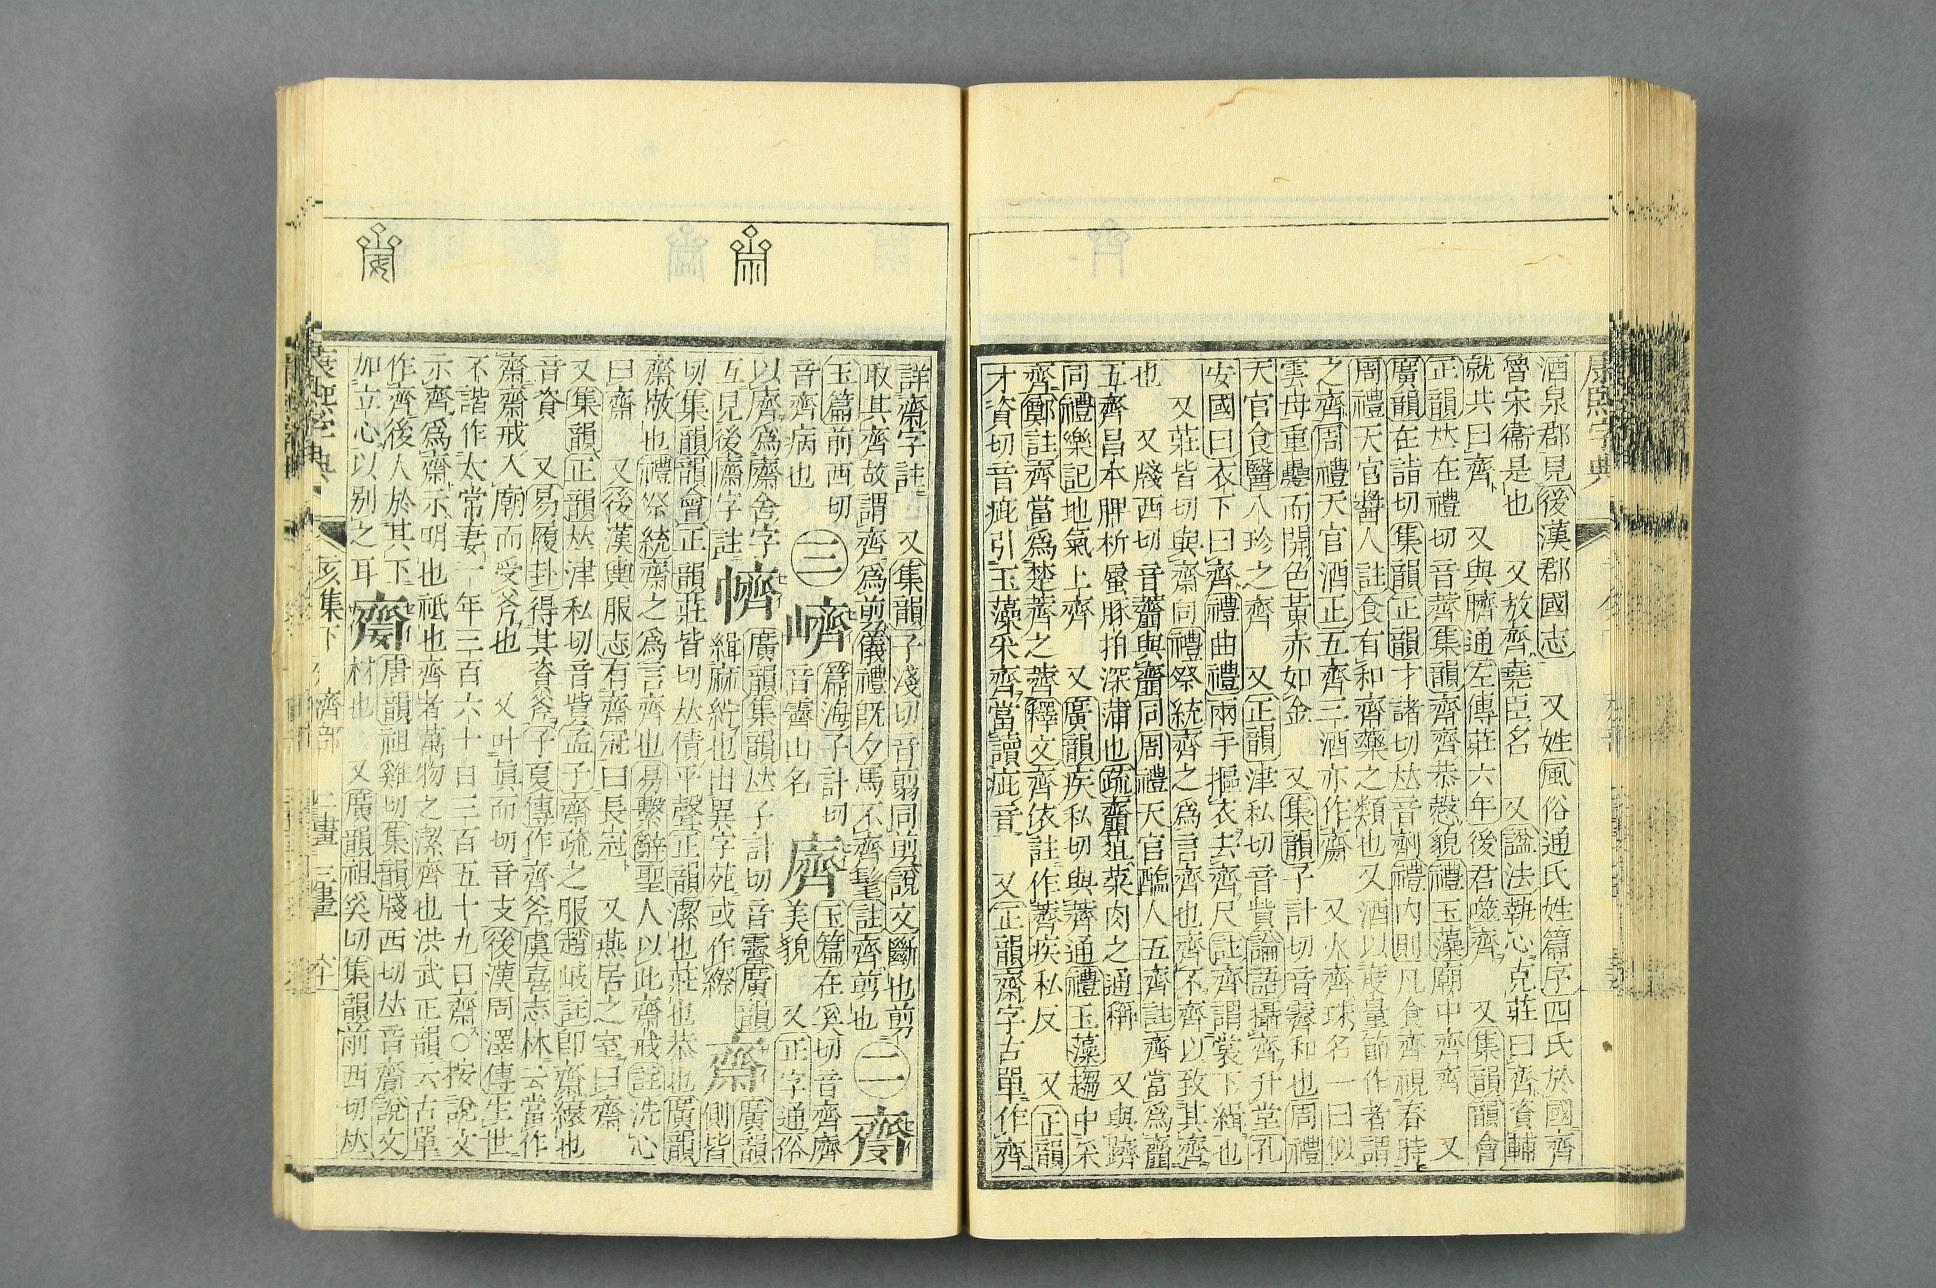 康熙字典
酒泉郡見後漢郡國志 又姓風俗通氏姓篇序四氏於國齊
魯宋衞是也 又放齊堯臣名 又謚法執心克莊曰齊資輔
就共曰齊 又與臍通左傳莊六年後君噬齊 又集韻韻會
正韻𠀤在禮切音薺集韻齊齊恭慤貌禮玉藻廟中齊齊 又
廣韻在詣切集韻正韻才諸切𠀤音劑禮內則凡食齊視春時
周禮天官醬人註食有和齊藥之類也又酒以度量節作者謂
之齊周禮天官酒正五齊三酒亦作齋 又火齊珠名一曰似
雲母重疊而開色黃赤如金 又集韻子計切音霽和也周禮
天官食醫八珍之齊 又正韻津私切音貲論語攝齊升堂孔
安國曰衣下曰齊禮曲禮兩手摳衣去齊尺註齊謂裳下緝也
又莊皆切與齋同禮祭統齊之爲言齊也齊不齊以致其齊
也 又牋西切音齎與齏同周禮天官醢人五齊註齊當爲齏
五齊昌本脾析蜃豚拍深蒲也疏齏菹菜肉之通稱 又與躋
同禮樂記地氣上齊 又廣韻疾私切與薺通禮玉藻趨中采
齊鄭註齊當爲楚薺之薺釋文齊依註作薺疾私反 又正韻
才資切音疵引玉藻采齊當讀疵音 又正韻齋字古單作齊
詳齋字註 又集韻子淺切音翦同剪說文斷也剪
取其齊故謂齊爲剪儀禮旣夕馬不齊髦註齊剪也 二 齌
玉篇前西切 篇海子計切 玉篇在奚切音齊齌
音齊病也 三 嚌 音霽山名 䶒 美貌 又正字通俗
以齊爲齋舍字 廣韻集韻𠀤子計切音霽廣韻
互見後齋字註 緝麻紵也出異字苑或作縩 齋 側皆
切集韻韻會正韻莊皆切𠀤債平聲正韻潔也莊也恭也廣韻
齋敬也禮祭統齋之爲言齊也易繫辭聖人以此齋戒註洗心
曰齋 又後漢輿服志有齋冠曰長冠 又燕居之室曰齋
又集韻正韻𠀤津私切音貲孟子齋疏之服趙岐註卽齋縗也
音資 又易履卦得其資斧子夏傳作齊斧虞喜志林云當作
齋齋戒入廟而受斧也 又叶眞而切音支後漢周澤傳生世
不諧作太常妻一年三百六十日三百五十九日齋○按說文
示齊爲齋示明也祇也齊者萬物之潔齊也洪武正韻云古單
作齊後人於其下 唐韻祖雞切集韻牋西切𠀤音齎說文
加立心以别之耳 齌 材也 又廣韻祖奚切集韻前西切𠀤
康熙字典 亥集下 齊部 二畫 三畫